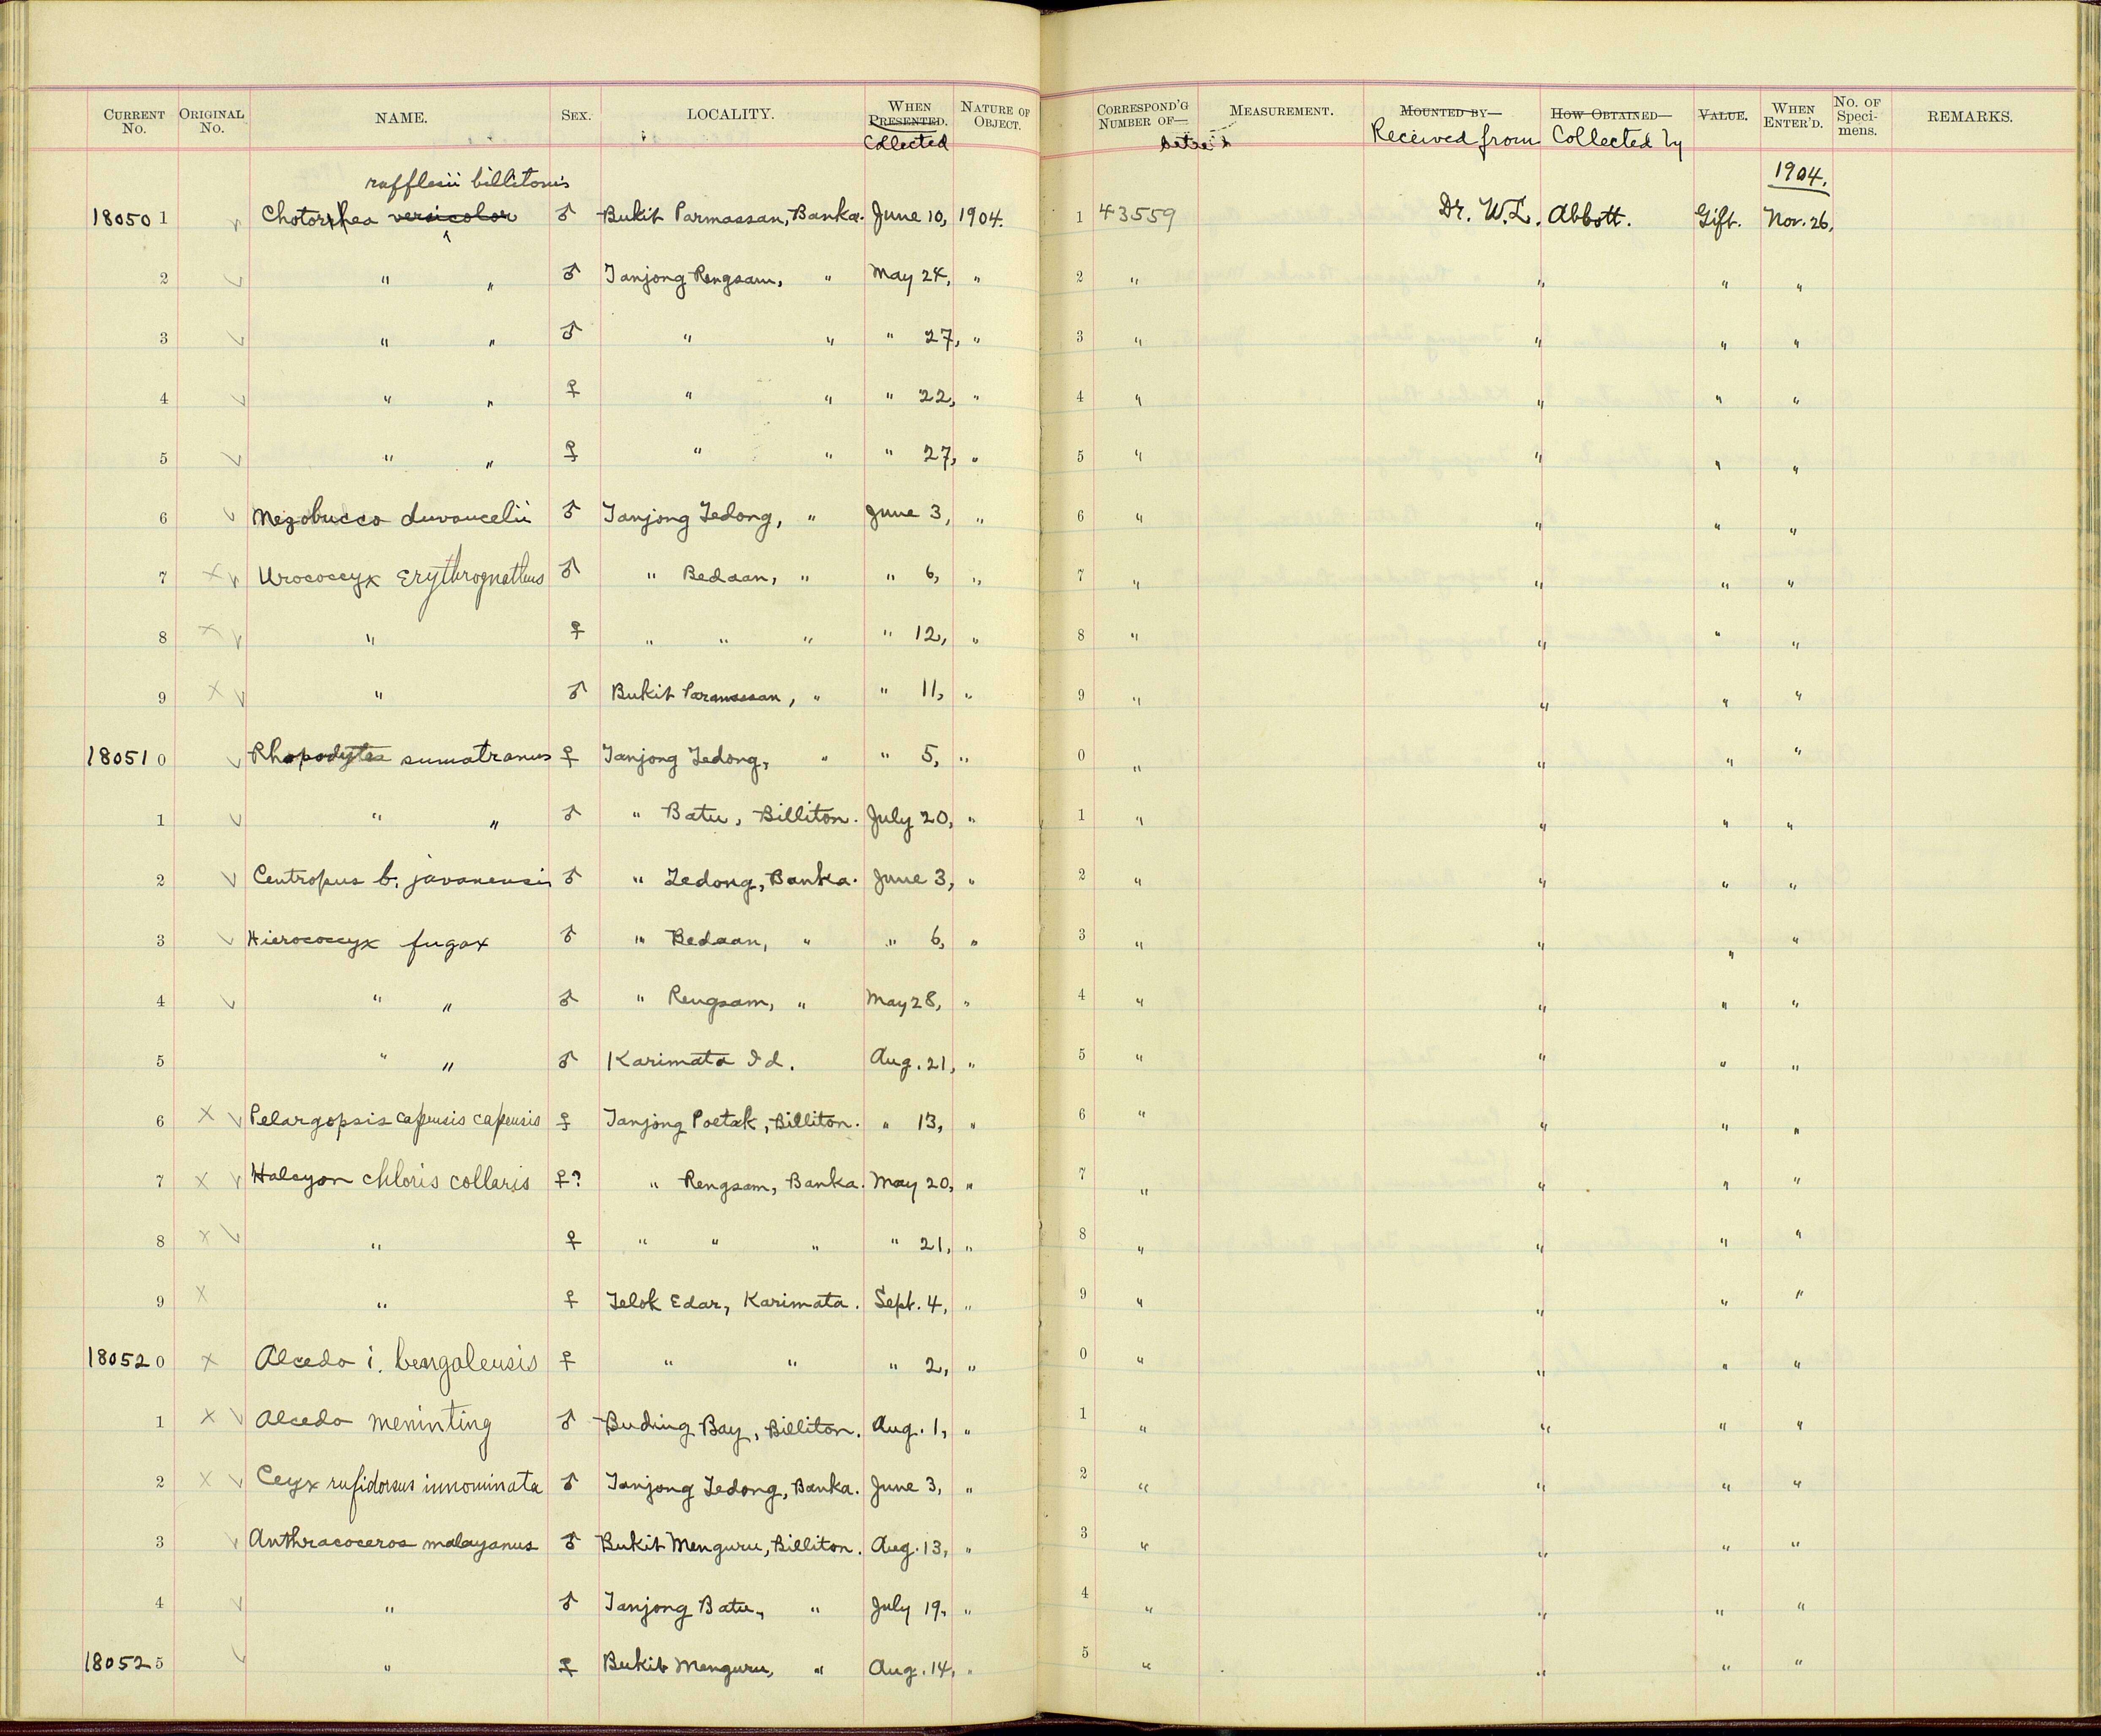 CURRENT No. ORIGINAL No. NAME. SEX. LOCALITY. WHEN PRESENTED. Collected NATURE OF OBJECT. CORRESPOND'G NUMBER OF— MEASUREMENT. MOUNTED BY— Received from HOW OBTAINED— Collected by VALUE. WHEN ENTER'D. No. OF Specimens. REMARKS.
rafflesii billitonis 1904.
18050 1 Chotorrhea versicolor ♂ Bukit Parmassan, Banka. June 10, 1904. 1 43559 Dr. W.L. Abbott. Gift. Nov. 26,
2 " " ♂ Tanjong Rengsam, " May 24, " 2 " " " "
3 " " ♂ " " " 27, " 3 " " " "
4 " " ♀ " " " 22, " 4 " " " "
5 " " ♀ " " " 27, " 5 " " " "
6 Mezobucco duvaucelii ♂ Tanjong Tedong, " June 3, " 6 " " " "
7 x Urococcyx erythrognathus ♂ " Bedaan, " " 6, " 7 " " " "
8 x " ♀ " " " " 12, " 8 " " " "
9 x " ♂ Bukit Paramassan, " " 11, " 9 " " " "
18051 0 Rhopodytes sumatranus ♀ Tanjong Tedong, " " 5, " 0 " " " "
1 " " ♂ " Batu, Billiton. July 20, " 1 " " " "
2 Centropus b. javanensis ♂ " Tedong, Banka. June 3, " 2 " " " "
3 Hierococcyx fugax ♂ " Bedaan, " " 6, " 3 " " " "
4 " " ♂ " Rengsam, " May 28, " 4 " " " "
5 " " ♂ Karimata Id. Aug. 21, " 5 " " " "
6 x Pelargopsis capensis capensis ♀ Tanjong Poetak, Billiton. " 13, " 6 " " " "
7 x Halcyon chloris collaris ♀? " Rengsam, Banka. May 20, " 7 " " " "
8 x " ♀ " " " " 21, " 8 " " " "
9 x " ♀ Telok Edar, Karimata. Sept. 4, " 9 " " " "
18052 0 x Alcedo i. bengalensis ♀ " " " 2, " 0 " " " "
1 x Alcedo meninting ♂ Buding Bay, Billiton. Aug. 1, " 1 " " " "
2 x Ceyx rufidorsus innominata ♂ Tanjong Tedong, Banka. June 3, " 2 " " " "
3 Anthracoceros malayanus ♂ Bukit Menguru, Billiton. Aug. 13, " 3 " " " "
4 " ♂ Tanjong Batu, " July 19, " 4 " " " "
18052 5 " ♀ Bukit Menguru, " Aug. 14, " 5 " " " "